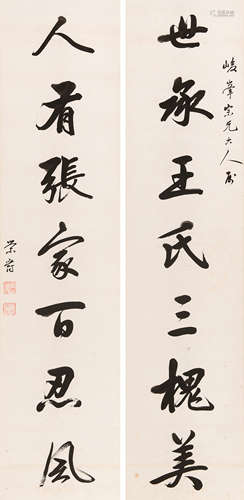 峻峯宗兄大人屬
世承王氏三槐美
人有張家百忍風